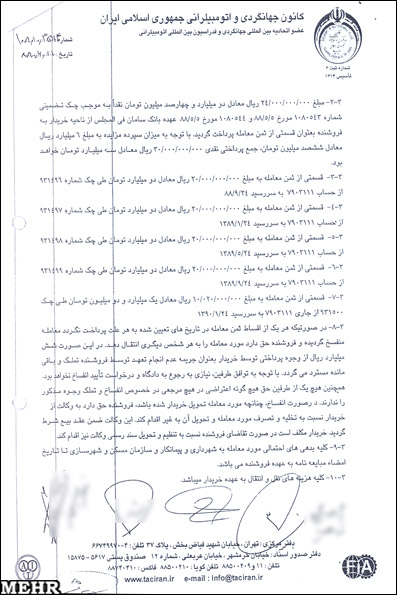 کانون جهانگردی و اتومبیلرانی جمهوری اسلامی ایران
عضو اتحادیه بین المللی جهانگردی و فدراسیون بین المللی اتومبیلرانی
شماره
تاریخ
شماره ثبت ۶
تاسیس ۱۳۱۴
۳-۲- مبلغ ۲۴/۰۰۰/۰۰۰/۰۰۰ ریال معادل دو میلیارد و چهارصد میلیون تومان نقداً به موجب چک تضمینی
شماره ۱۰۸۰۵۴۳ مورخ ۸۸/۵/۵ و ۱۰۸۰۵۴۴ مورخ ۸۸/۵/۵ عهده بانک سامان فی المجلس از ناحیه خریدار به
فروشنده بعنوان قسمتی از ثمن معامله پرداخت گردید. با توجه به میزان سپرده مزایده به مبلغ ۶ میلیارد ریال
معادل ششصد میلیون تومان، جمع پرداختی نقدی ۳۰/۰۰۰/۰۰۰/۰۰۰ ریال معادل سه میلیارد تومان خواهد
بود.
۳-۳- قسمتی از ثمن معامله به مبلغ ۲۰/۰۰۰/۰۰۰/۰۰۰ ریال معادل دو میلیارد تومان طی چک شماره ۹۳۱۴۹۶
از حساب ۷۹۰۳۱۱۱ به سررسید ۸۸/۹/۲۴
۳-۴- قسمتی از ثمن معامله به مبلغ ۲۰/۰۰۰/۰۰۰/۰۰۰ ریال معادل دو میلیارد تومان طی چک شماره ۹۳۱۴۹۷
از حساب ۷۹۰۳۱۱۱ به سررسید ۱۳۸۹/۱/۲۴
۳-۵- قسمتی از ثمن معامله به مبلغ ۲۰/۰۰۰/۰۰۰/۰۰۰ ریال معادل دو میلیارد تومان طی چک شماره ۹۳۱۴۹۸
از حساب ۷۹۰۳۱۱۱ به سررسید ۱۳۸۹/۵/۲۴
۳-۶- قسمتی از ثمن معامله به مبلغ ۲۰/۰۰۰/۰۰۰/۰۰۰ ریال معادل دو میلیارد تومان طی چک شماره ۹۳۱۴۹۹
از حساب ۷۹۰۳۱۱۱ به سررسید ۱۳۸۹/۹/۲۴
۳-۷- قسمتی از ثمن معامله به مبلغ ۱۰/۰۲۰/۰۰۰/۰۰۰ ریال معادل یک میلیارد و دو میلیون تومان طی چک
۹۳۱۵۰۰ از جاری ۷۹۰۳۱۱۱ به سررسید ۱۳۹۰/۱/۲۴
۳-۸- در صورتیکه هر یک از اقساط ثمن معامله در تاریخ های تعیین شده به هر علت پرداخت نگردد معامله
منفسخ گردیده و فروشنده حق دارد مورد معامله را به هر شخص دیگری انتقال دهد. در این صورت شش
میلیارد ریال از وجوه پرداختی توسط خریدار بعنوان جریمه عدم انجام تعهد توسط فروشنده تملک و باقی
مانده مسترد می گردد. با توجه به توافق طرفین، نیازی به رجوع به دادگاه و درخواست تأیید انفساخ نخواهد بود.
همچنین هیچ یک از طرفین حق هیچ گونه اعتراضی در هیچ مرجعی در خصوص انفساخ و تملک وجوه مذکور
را ندارند. در صورت انفساخ، چنانچه مورد معامله تحویل خریدار شده باشد، فروشنده حق دارد به وکالت از
خریدار نسبت به تخلیه و تصرف مورد معامله و تحویل آن به غیر اقدام کند. این وکالت ضمن عقد بیع شرط
گردید. خریدار مکلف است در صورت تقاضای فروشنده نسبت به تنظیم و تحویل سند رسمی وکالت نیز اقدام کند.
۳-۹- کلیه بدهی های احتمالی مورد معامله به شهرداری و پیمانکار و سازمان مسکن و شهرسازی تا تاریخ
امضاء مبایعه نامه به عهده فروشنده می باشد.
۳-۱۰- کلیه هزینه های نقل و انتقال به عهده خریدار میباشد.
دفتر مرکزی: تهران، خیابان شهید فیاض بخش، پلاک ۳۷ تلفن: ۴-۶۶۷۴۹۹۷۰
دفتر صدور اسناد: خیابان خرمشهر، خیابان عربعلی، شماره ۱۲ صندوق پستی ۵۶۱۷-۱۵۸۷۵
تلفن: ۱۱ و ۸۸۵۰۲۰۰۹ تلفن گویا: ۸۸۵۰۰۲۱۰ فاکس: ۸۸۷۴۰۴۱۰
www.taciran.ir e-mail : info@taciran.ir
FIA
AIT
MEHR